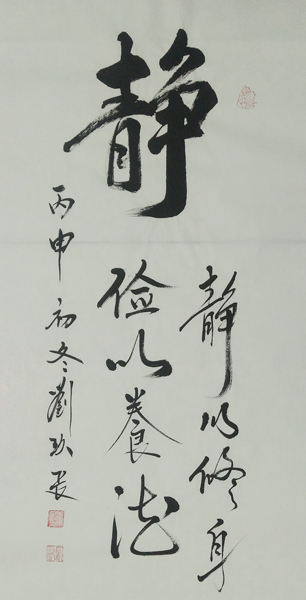 静
静以修身
俭以養德
丙申初冬劉